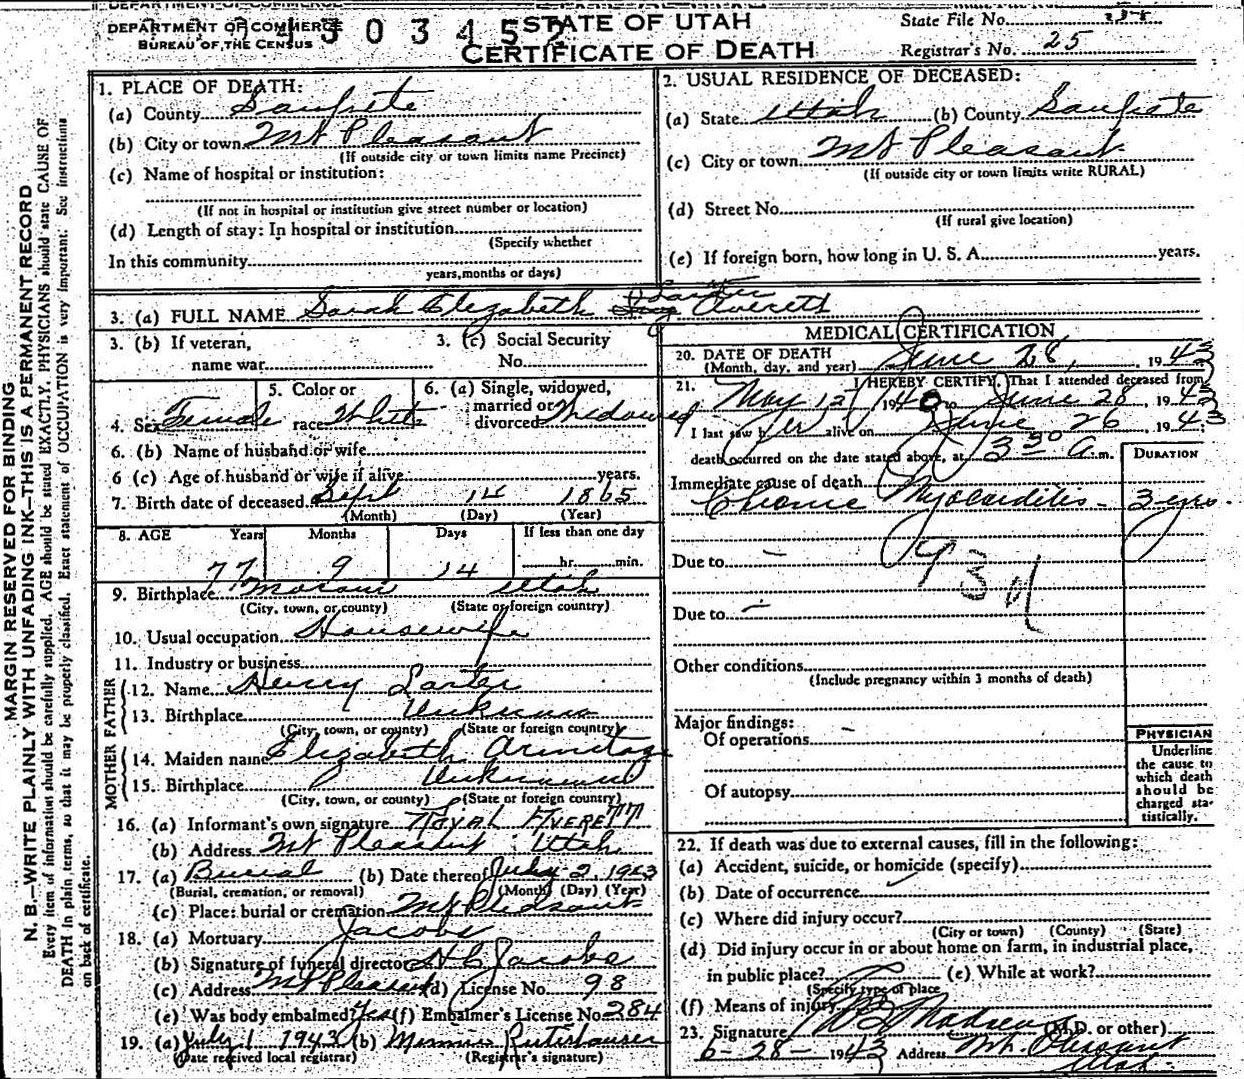 DEPARTMENT OF COMMERCE
BUREAU OF THE CENSUS
430345
STATE OF UTAH
CERTIFICATE OF DEATH
State File No.
Registrar's No. 25
MARGIN RESERVED FOR BINDING
N. B.—WRITE PLAINLY WITH UNFADING INK—THIS IS A PERMANENT RECORD
Every item of information should be carefully supplied. AGE should be stated EXACTLY. PHYSICIANS should state CAUSE OF
DEATH in plain terms, so that it may be properly classified. Exact statement of OCCUPATION is very important. See instructions
on back of certificate.
1. PLACE OF DEATH:
(a) County Sanpete
(b) City or town Mt Pleasant
(If outside city or town limits name Precinct)
(c) Name of hospital or institution:
(If not in hospital or institution give street number or location)
(d) Length of stay: In hospital or institution
(Specify whether
In this community
years, months or days)
2. USUAL RESIDENCE OF DECEASED:
(a) State Utah (b) County Sanpete
(c) City or town Mt Pleasant
(If outside city or town limits write RURAL)
(d) Street No.
(If rural give location)
(e) If foreign born, how long in U. S. A. years.
3. (a) FULL NAME Sarah Elizabeth Averett
3. (b) If veteran,
name war
3. (c) Social Security
No.
4. Sex Female
5. Color or
race White
6. (a) Single, widowed,
married or
divorced Widowed
6. (b) Name of husband or wife
6 (c) Age of husband or wife if alive years.
7. Birth date of deceased Sept 14 1865
(Month) (Day) (Year)
8. AGE Years Months Days If less than one day
77 9 14 hr. min.
9. Birthplace Moroni Utah
(City, town, or county) (State or foreign country)
10. Usual occupation Housewife
11. Industry or business
FATHER
12. Name Henry Larter
13. Birthplace Unknown
(City, town, or county) (State or foreign country)
MOTHER
14. Maiden name Elizabeth Armitage
15. Birthplace Unknown
(City, town, or county) (State or foreign country)
16. (a) Informant's own signature Royal Averett
(b) Address Mt Pleasant Utah
17. (a) Burial (b) Date thereof July 2 1943
(Burial, cremation, or removal) (Month) (Day) (Year)
(c) Place: burial or cremation Mt Pleasant
18. (a) Mortuary Jacobs
(b) Signature of funeral director H C Jacobs
(c) Address Mt Pleasant (d) License No. 98
(e) Was body embalmed? Yes (f) Embalmer's License No. 284
19. (a) July 1 1943 (b) Minnie Rutishauser
(Date received local registrar) (Registrar's signature)
MEDICAL CERTIFICATION
20. DATE OF DEATH June 28, 1943
(Month, day, and year)
21. I HEREBY CERTIFY, That I attended deceased from
May 12 1940 to June 28, 1943
I last saw her alive on June 26, 1943
death occurred on the date stated above, at 3 30 A. m.
DURATION
Immediate cause of death
Chronic Myocarditis - 3 yrs.
Due to -
93 d
Due to -
Other conditions
(Include pregnancy within 3 months of death)
Major findings:
Of operations
Of autopsy
PHYSICIAN
Underline
the cause to
which death
should be
charged sta-
tistically.
22. If death was due to external causes, fill in the following:
(a) Accident, suicide, or homicide (specify)
(b) Date of occurrence
(c) Where did injury occur?
(City or town) (County) (State)
(d) Did injury occur in or about home on farm, in industrial place,
in public place? (e) While at work?
(Specify type of place
(f) Means of injury
23. Signature (M.D. or other)
6-28-1943 Address Mt. Pleasant
Utah